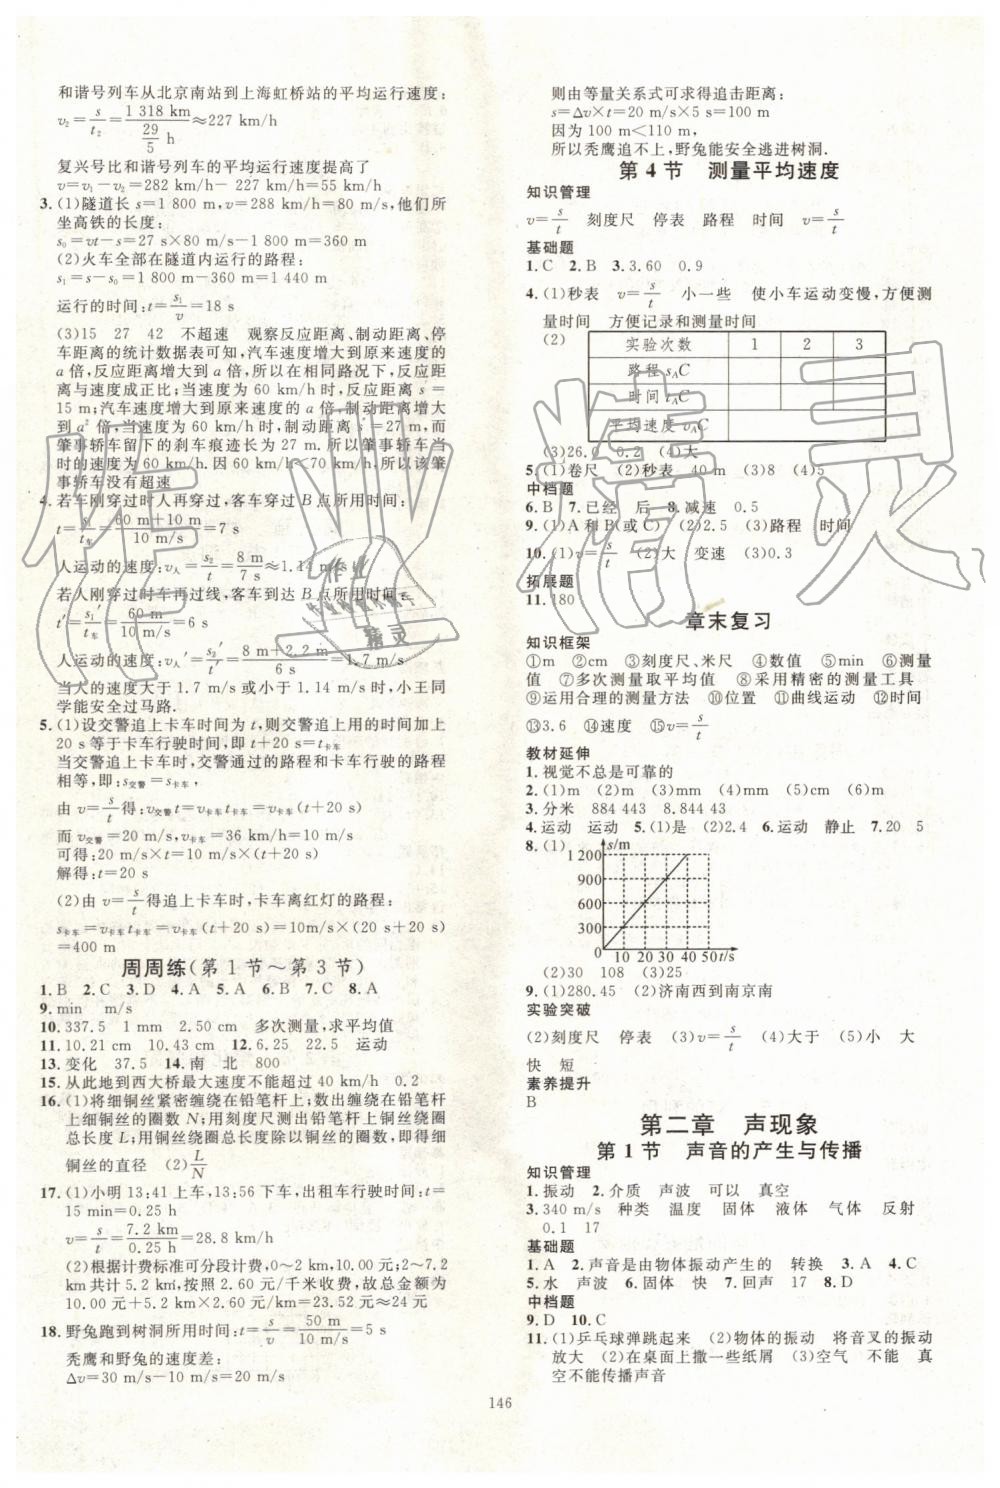 和谐号列车从北京南站到上海虹桥站的平均运行速度:
v₂=s/t₂=1 318 km/(29/5 h)≈227 km/h
复兴号比和谐号列车的平均运行速度提高了
v=v₁-v₂=282 km/h-227 km/h=55 km/h
3.(1)隧道长s=1 800 m,v=288 km/h=80 m/s,他们所
坐高铁的长度:
s₀=vt-s=27 s×80 m/s-1 800 m=360 m
(2)火车全部在隧道内运行的路程:
s₁=s-s₀=1 800 m-360 m=1 440 m
运行的时间:t=s₁/v=18 s
(3)15 27 42 不超速 观察反应距离、制动距离、停
车距离的统计数据表可知,汽车速度增大到原来速度的
a倍,反应距离增大到a倍,所以在相同路况下,反应距
离与速度成正比;当速度为60 km/h时,反应距离s=
15 m;汽车速度增大到原来速度的a倍,制动距离增大
到a²倍,当速度为60 km/h时,制动距离s′=27 m,而
肇事轿车留下的刹车痕迹长为27 m.所以肇事轿车当
时的速度为60 km/h.因为60 km/h<70 km/h,所以该肇
事轿车没有超速
4.若车刚穿过时人再穿过,客车穿过B点所用时间:
t=s₁/t车=(60 m+10 m)/(10 m/s)=7 s
人运动的速度:v人=s₂/t=8 m/7 s≈1.14 m/s
若人刚穿过时车再过线,客车到达B点所用时间:
t′=s₁′/t车=60 m/(10 m/s)=6 s
人运动的速度:v人′=s₂′/t′=(8 m+2.2 m)/6 s=1.7 m/s
当人的速度大于1.7 m/s或小于1.14 m/s时,小王同
学能安全过马路.
5.(1)设交警追上卡车时间为t,则交警追上用的时间加上
20 s等于卡车行驶时间,即t+20 s=t卡车
当交警追上卡车时,交警通过的路程和卡车行驶的路程
相等,即:s交警=s卡车,
由v=s/t得:v交警t=v卡车t卡车=v卡车(t+20 s)
而v交警=20 m/s,v卡车=36 km/h=10 m/s
可得:20 m/s×t=10 m/s×(t+20 s)
解得:t=20 s
(2)由v=s/t得追上卡车时,卡车离红灯的路程:
s卡车=v卡车t卡车=v卡车(t+20 s)=10m/s×(20 s+20 s)
=400 m
周周练(第1节～第3节)
1.B 2.C 3.D 4.A 5.A 6.C 7.C 8.A
9.min m/s
10.337.5 1 mm 2.50 cm 多次测量,求平均值
11.10.21 cm 10.43 cm 12.6.25 22.5 运动
13.变化 37.5 14.南 北 800
15.从此地到西大桥最大速度不能超过40 km/h 0.2
16.(1)将细铜丝紧密缠绕在铅笔杆上;数出缠绕在铅笔杆
上细铜丝的圈数N;用刻度尺测出铅笔杆上铜丝绕圈
总长度L;用铜丝绕圈总长度除以铜丝的圈数,即得细
铜丝的直径 (2)L/N
17.(1)小明13:41上车,13:56下车,出租车行驶时间:t=
15 min=0.25 h
v=s/t=7.2 km/0.25 h=28.8 km/h
(2)根据计费标准可分段计费,0～2 km,10元;2～7.2
km共计5.2 km,按照2.60元/千米收费,故总金额为
10元+5.2 km×2.60元/km=23.52元≈24元
18.野兔跑到树洞所用时间:t=s/v=50 m/(10 m/s)=5 s
秃鹰和野兔的速度差:
Δv=30 m/s-10 m/s=20 m/s
则由等量关系式可求得追击距离:
s=Δv×t=20 m/s×5 s=100 m
因为100 m<110 m,
所以秃鹰追不上,野兔能安全逃进树洞.
第4节 测量平均速度
知识管理
v=s/t 刻度尺 停表 路程 时间 v=s/t
基础题
1.C 2.B 3.3.60 0.9
4.(1)秒表 v=s/t 小一些 使小车运动变慢,方便测
量时间 方便记录和测量时间
(2)
实验次数 1 2 3
路程sAC
时间tAC
平均速度vAC
(3)26.0 0.2 (4)大
5.(1)卷尺 (2)秒表 40 m (3)8 (4)5
中档题
6.B 7.已经 后 8.减速 0.5
9.(1)A和B(或C) (2)2.5 (3)路程 时间
10.(1)v=s/t (2)大 变速 (3)0.3
拓展题
11.180
章末复习
知识框架
①m ②cm ③刻度尺、米尺 ④数值 ⑤min ⑥测量
值 ⑦多次测量取平均值 ⑧采用精密的测量工具
⑨运用合理的测量方法 ⑩位置 ⑪曲线运动 ⑫时间
⑬3.6 ⑭速度 ⑮v=s/t
教材延伸
1.视觉不总是可靠的
2.(1)m (2)dm (3)mm (4)mm (5)cm (6)m
3.分米 884 443 8.844 43
4.运动 运动 5.(1)是 (2)2.4 6.运动 静止 7.20 5
8.(1)
s/m
1 200
900
600
300
0 10 20 30 40 50 t/s
(2)30 108 (3)25
9.(1)280.45 (2)济南西到南京南
实验突破
(2)刻度尺 停表 (3)v=s/t (4)大于 (5)小 大
快 短
素养提升
B
第二章 声现象
第1节 声音的产生与传播
知识管理
1.振动 2.介质 声波 可以 真空
3.340 m/s 种类 温度 固体 液体 气体 反射
0.1 17
基础题
1.A 2.声音是由物体振动产生的 转换 3.A 4.C
5.水 声波 6.固体 快 7.回声 17 8.D
中档题
9.D 10.C
11.(1)乒乓球弹跳起来 (2)物体的振动 将音叉的振动
放大 (2)在桌面上撒一些纸屑 (3)空气 不能 真
空不能传播声音
146
作业精灵